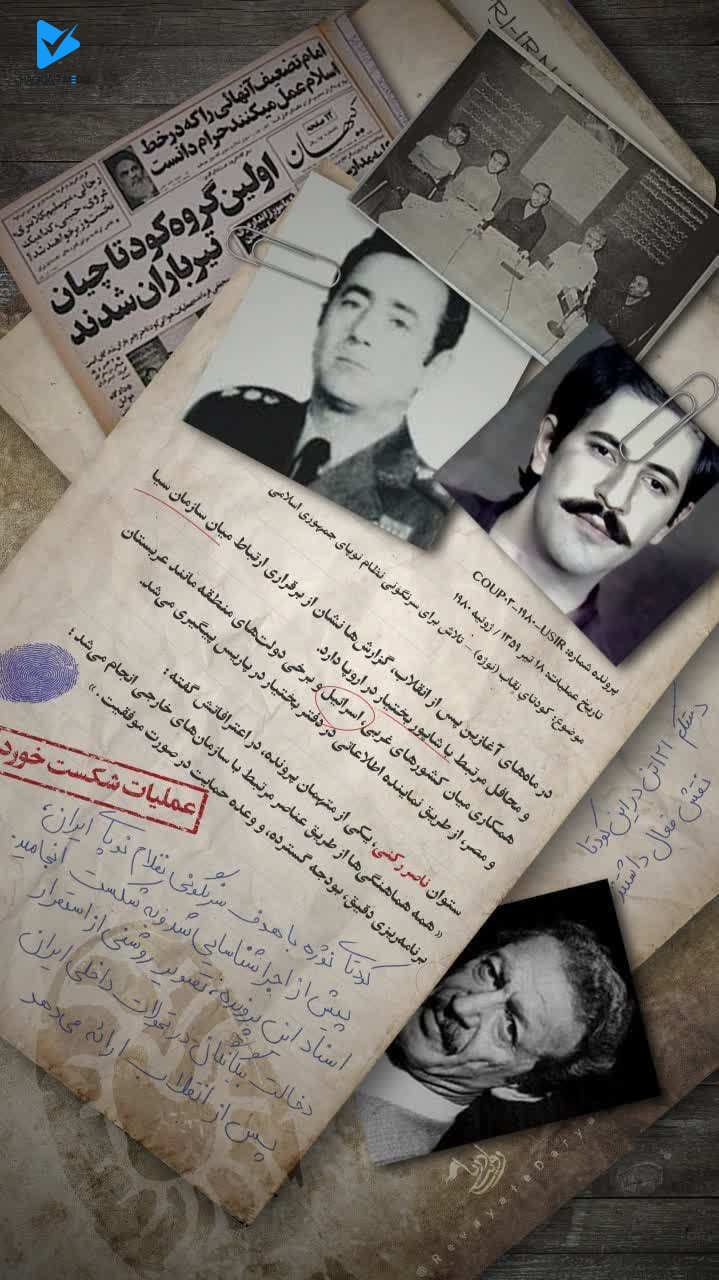 RI-IRN
امام تضعیف آنهائی را که در خط
اسلام عمل میکنند حرام دانست
۱۲ صفحه
کیهان
اولین گروه کودتاچیان
تیرباران شدند
پرونده شماره: COUP.۲-۱۹۸۰-USIR
تاریخ عملیات: ۱۸ تیر ۱۳۵۹ / ژوئیه ۱۹۸۰
موضوع: کودتای نقاب (نوژه) – تلاش برای سرنگونی نظام نوپای جمهوری اسلامی
در ماه‌های آغازین پس از انقلاب، گزارش‌ها نشان از برقراری ارتباط میان سازمان سیا
و محافل مرتبط با شاپور بختیار در اروپا دارد.
همکاری میان کشورهای غربی، اسرائیل و برخی دولت‌های منطقه مانند عربستان
و مصر، از طریق نماینده اطلاعاتی در دفتر بختیار در پاریس پیگیری می‌شد.
ستوان ناصر رکنی، یکی از متهمان پرونده، در اعترافاتش گفته:
«همه هماهنگی‌ها از طریق عناصر مرتبط با سازمان‌های خارجی انجام می‌شد؛
برنامه‌ریزی دقیق، بودجه گسترده، و وعده حمایت در صورت موفقیت.»
عملیات شکست خورد
کودتای نوژه با هدف سرنگونی نظام نوپای ایران،
پیش از اجرا شناسایی شد و به شکست انجامید.
اسناد این پرونده، تصویر روشنی از استمرار
دخالت بیگانگان در تحولات داخلی ایران
پس از انقلاب ارائه می‌دهد
دستکم ۱۲۱ تن در این کودتا
نقش فعال داشتند
@RevayateDarya